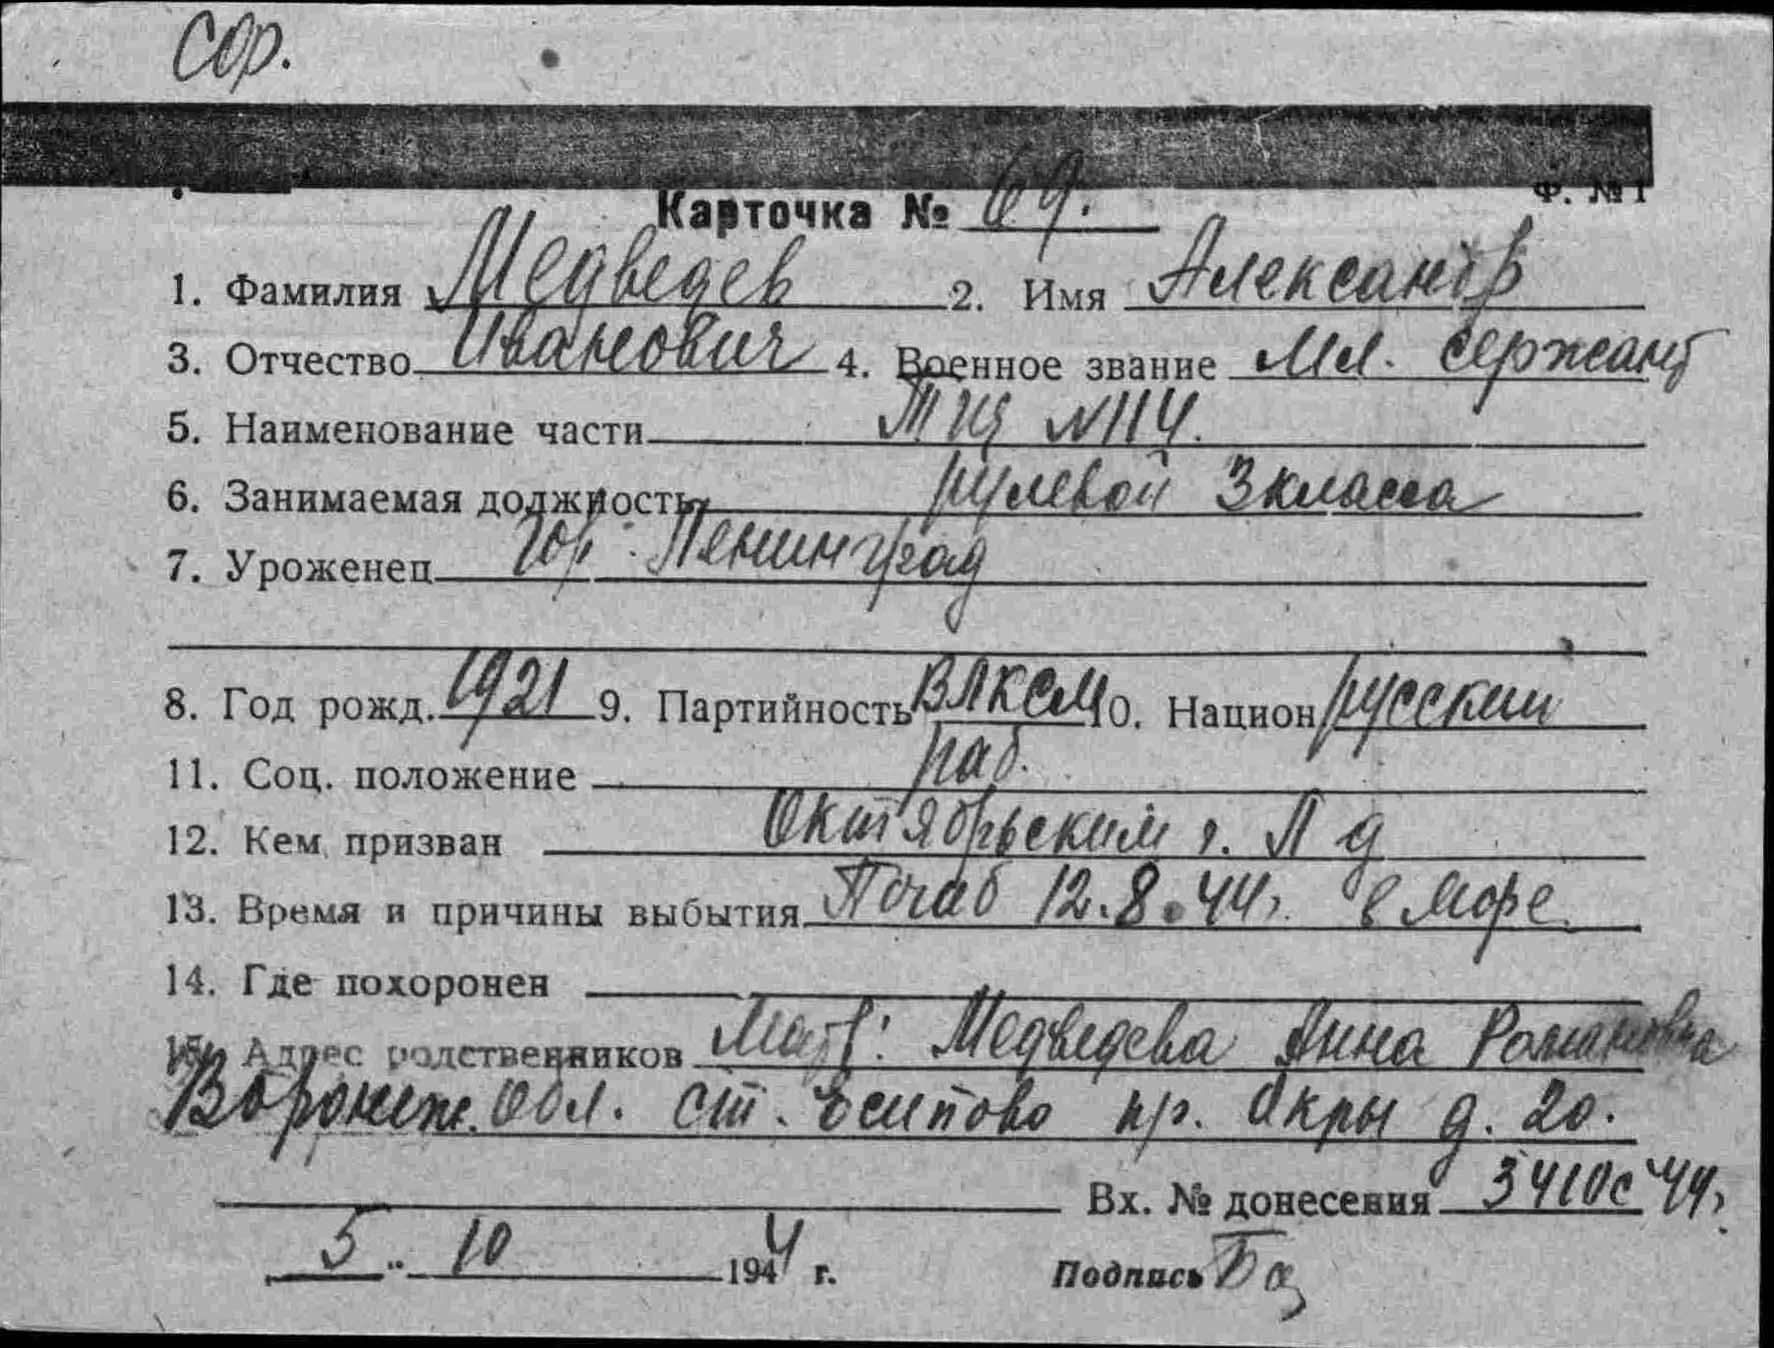 СОР.
Ф. № 1
Карточка № 69.
1. Фамилия Медведев 2. Имя Александр
3. Отчество Иванович 4. Военное звание Мл. сержант
5. Наименование части ТЩ №114.
6. Занимаемая должность рулевой 3 класса
7. Уроженец Гор. Ленинград
8. Год рожд. 1921 9. Партийность ВЛКСМ 10. Национ русский
11. Соц. положение раб.
12. Кем призван Октябрьским г. Л д
13. Время и причины выбытия Погиб 12.8.44г. в море.
14. Где похоронен
15. Адрес родственников Мать: Медведева Анна Романовна
Воронеж. обл. ст. Есипово пр. Икры д. 20.
Вх. № донесения 3410с 44г.
5 " 10 1944 г. Подпись